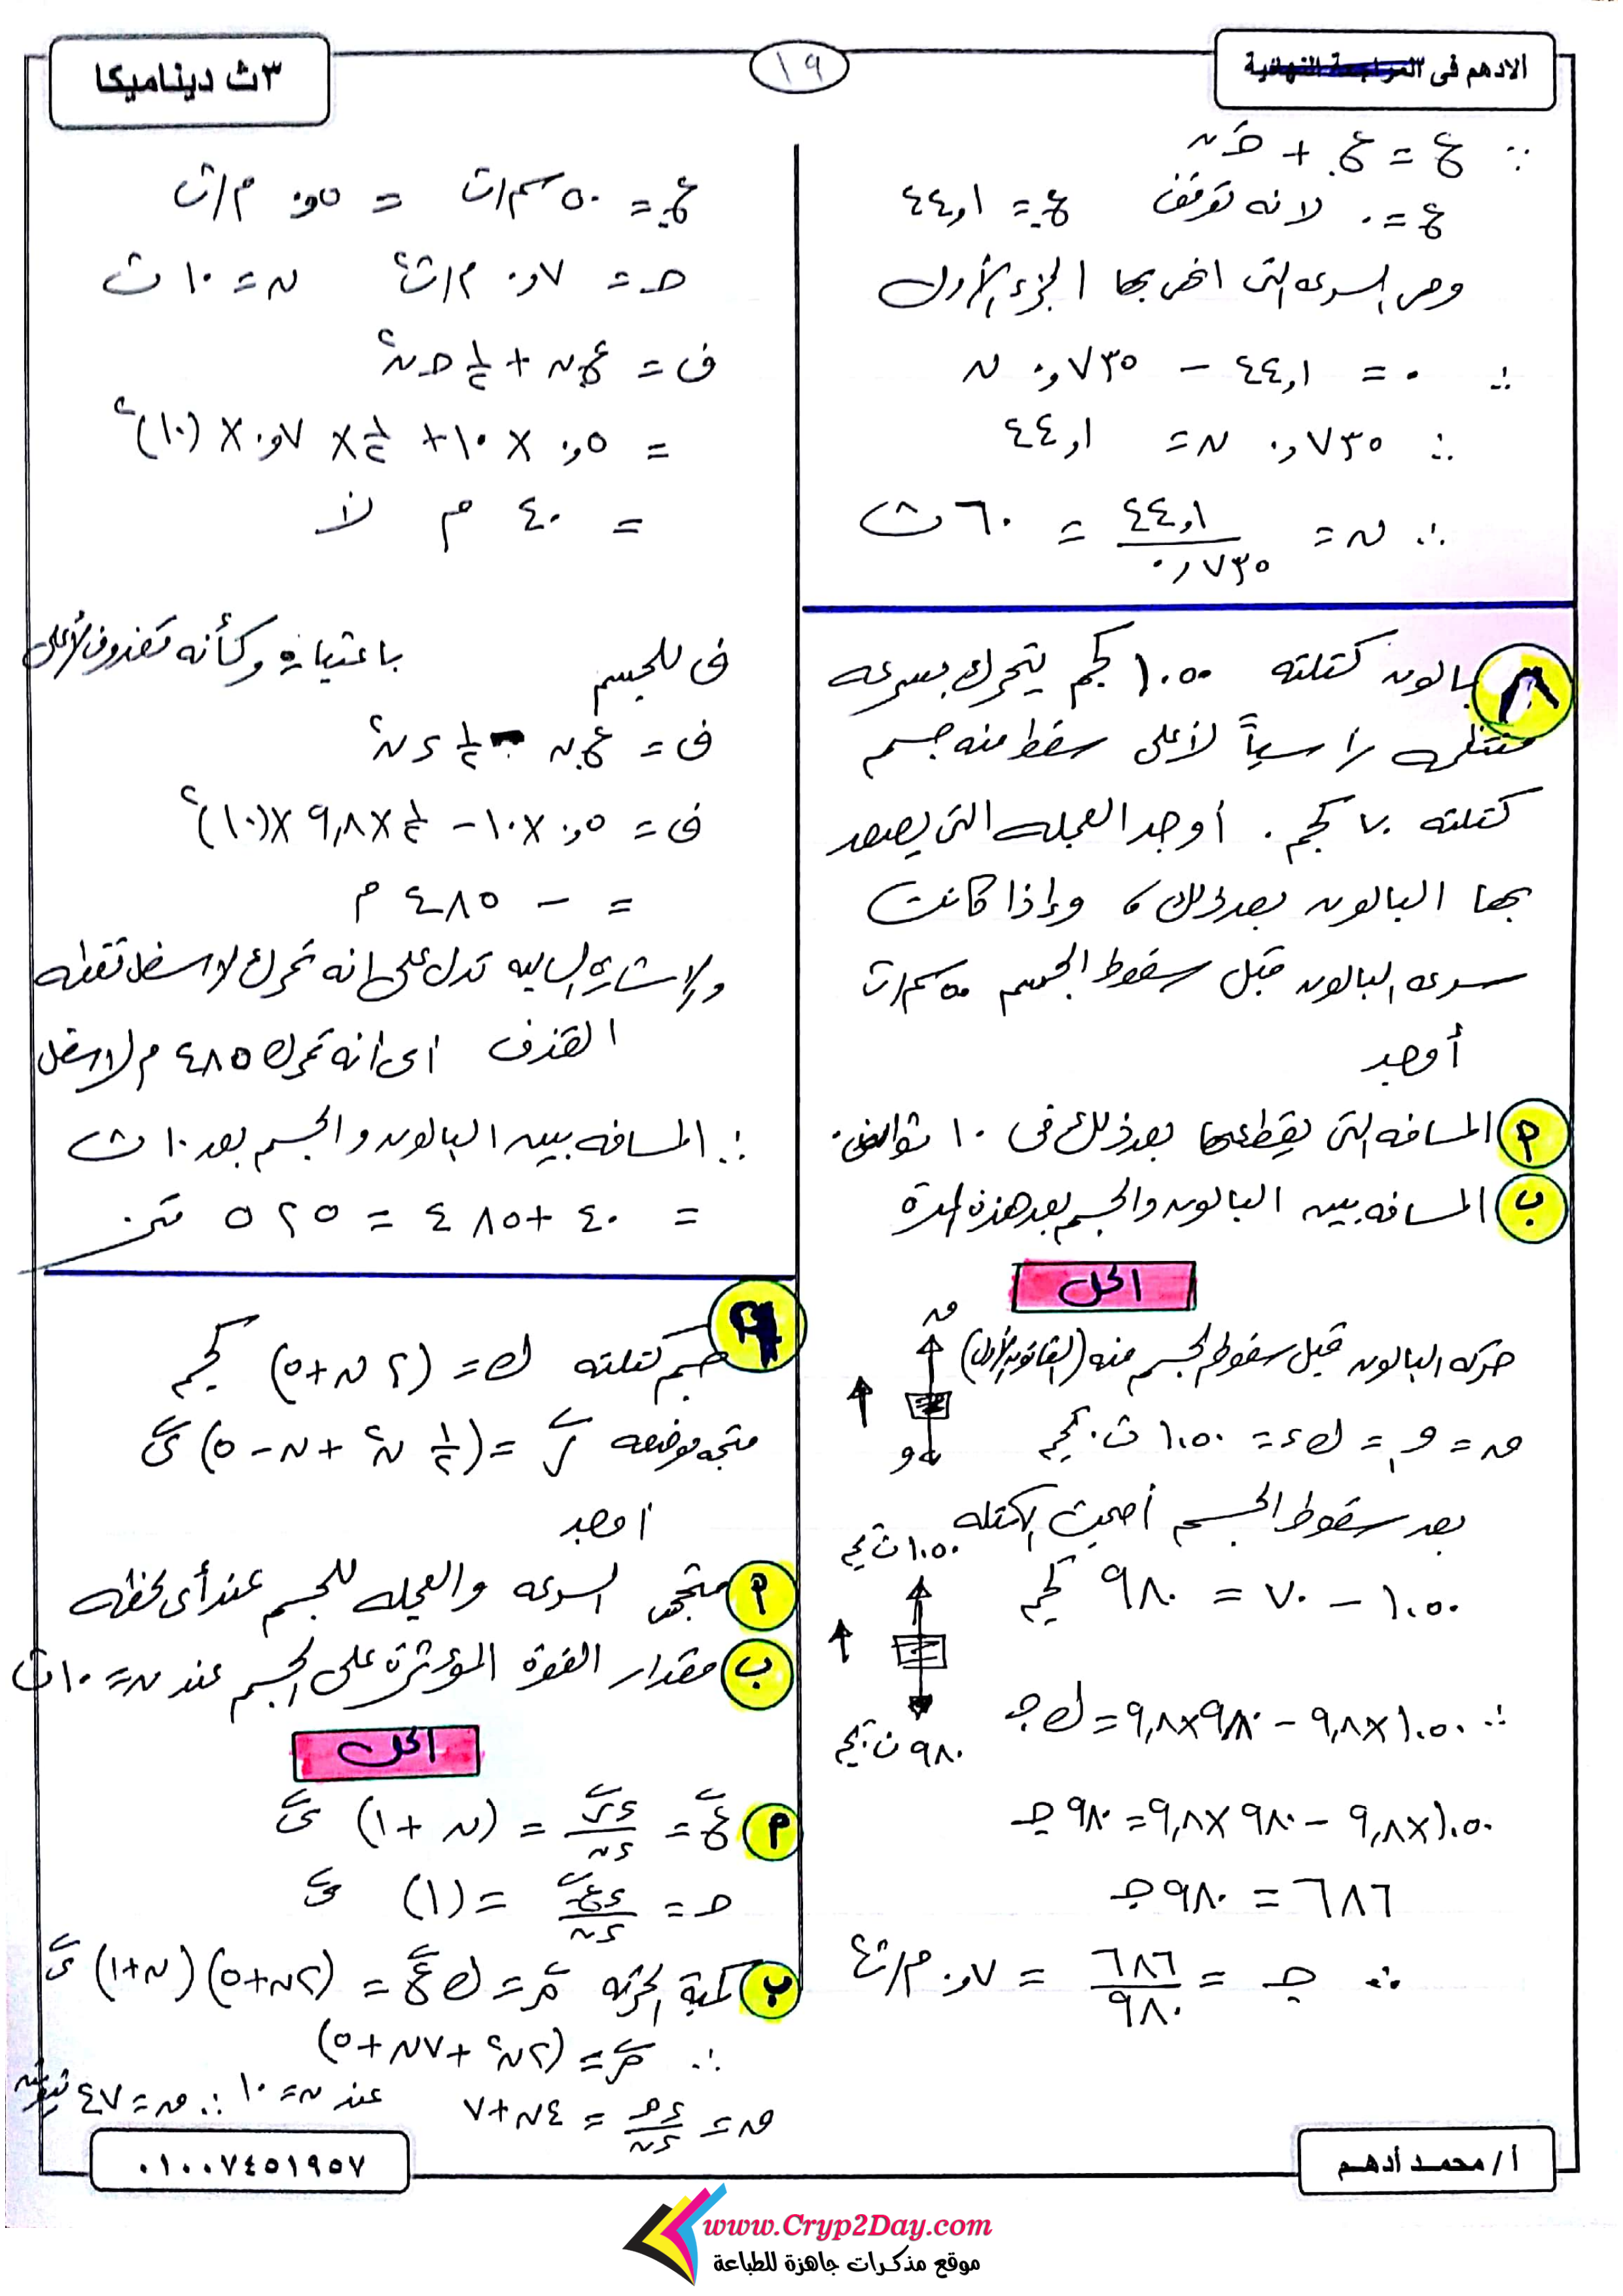 الادهم فى المراجعة النهائية
١٩
٣ث ديناميكا
∵ ع = ع. + حـ ن
ع = ٠ لانه توقف ع. = ٤٤,١
وهى السرعه التى انهى بها الجزء الأول
∴ ٠ = ٤٤,١ − ٠,٧٣٥ ن
∴ ٠,٧٣٥ ن = ٤٤,١
∴ ن = ٤٤,١ / ٠,٧٣٥ = ٦٠ ث
٨ بالون كتلته ١٠٥٠ كجم يتحرك بسرعه
منتظمه رأسياً لأعلى سقط منه جسم
كتلته ٧٠ كجم . أوجد العجله التى يصعد
بها البالون بعد ذلك ، وإذا كانت
سرعه البالون قبل سقوط الجسم ٥٠ سم/ث
أوجد
م المسافه التى يقطعها بعد ذلك فى ١٠ ثوانى.
ب المسافه بين البالون والجسم بعد هذه المدة
الحل
حركه البالون قبل سقوط الجسم منه (القانون الأول)
م
و
م = و = ك ء = ١٠٥٠ ث. كجم
بعد سقوط الجسم أصبحت الكتله
١٠٥٠ ث كجم
١٠٥٠ − ٧٠ = ٩٨٠ كجم
٩٨٠ ث كجم
∴ ١٠٥٠ × ٩,٨ − ٩٨٠ × ٩,٨ = ك جـ
١٠٥٠ × ٩,٨ − ٩٨٠ × ٩,٨ = ٩٨٠ جـ
٦٨٦ = ٩٨٠ جـ
∴ جـ = ٦٨٦ / ٩٨٠ = ٠,٧ م/ث٢
ع. = ٥٠ سم/ث = ٠,٥ م/ث
حـ = ٠,٧ م/ث٢ ن = ١٠ ث
ف = ع. ن + ١/٢ حـ ن٢
= ٠,٥ × ١٠ + ١/٢ × ٠,٧ × (١٠)٢
= ٤٠ م
ف للجسم باعتباره وكأنه مقذوف لأعلى
ف = ع. ن − ١/٢ ء ن٢
ف = ٠,٥ × ١٠ − ١/٢ × ٩,٨ × (١٠)٢
= − ٤٨٥ م
والإشاره السالبه تدل على انه تحرك لاسفل نقطه
القذف اى انه تحرك ٤٨٥ م لاسفل
∴ المسافه بين البالون والجسم بعد ١٠ ث
= ٤٠ + ٤٨٥ = ٥٢٥ متر
٩ جسم كتلته ك = (٢ ن + ٥) كجم
متجه موضعه ر = (١/٢ ن٢ + ن − ٥) ى
اوجد
م متجهى السرعه والعجله للجسم عند أى لحظه
ب مقدار القوة المؤثرة على الجسم عند ن = ١٠ ث
الحل
م ع = ء ر / ء ن = (ن + ١) ى
حـ = ء ع / ء ن = (١) ى
ب كمية الحركه م = ك ع = (٢ن + ٥)(ن + ١) ى
∴ م = (٢ن٢ + ٧ن + ٥)
م = ء م / ء ن = ٤ن + ٧ عند ن = ١٠ ∴ م = ٤٧ نيوتن
أ/ محمد أدهم
٠١٠٠٧٤٥١٩٥٧
www.Cryp2Day.com
موقع مذكرات جاهزة للطباعة